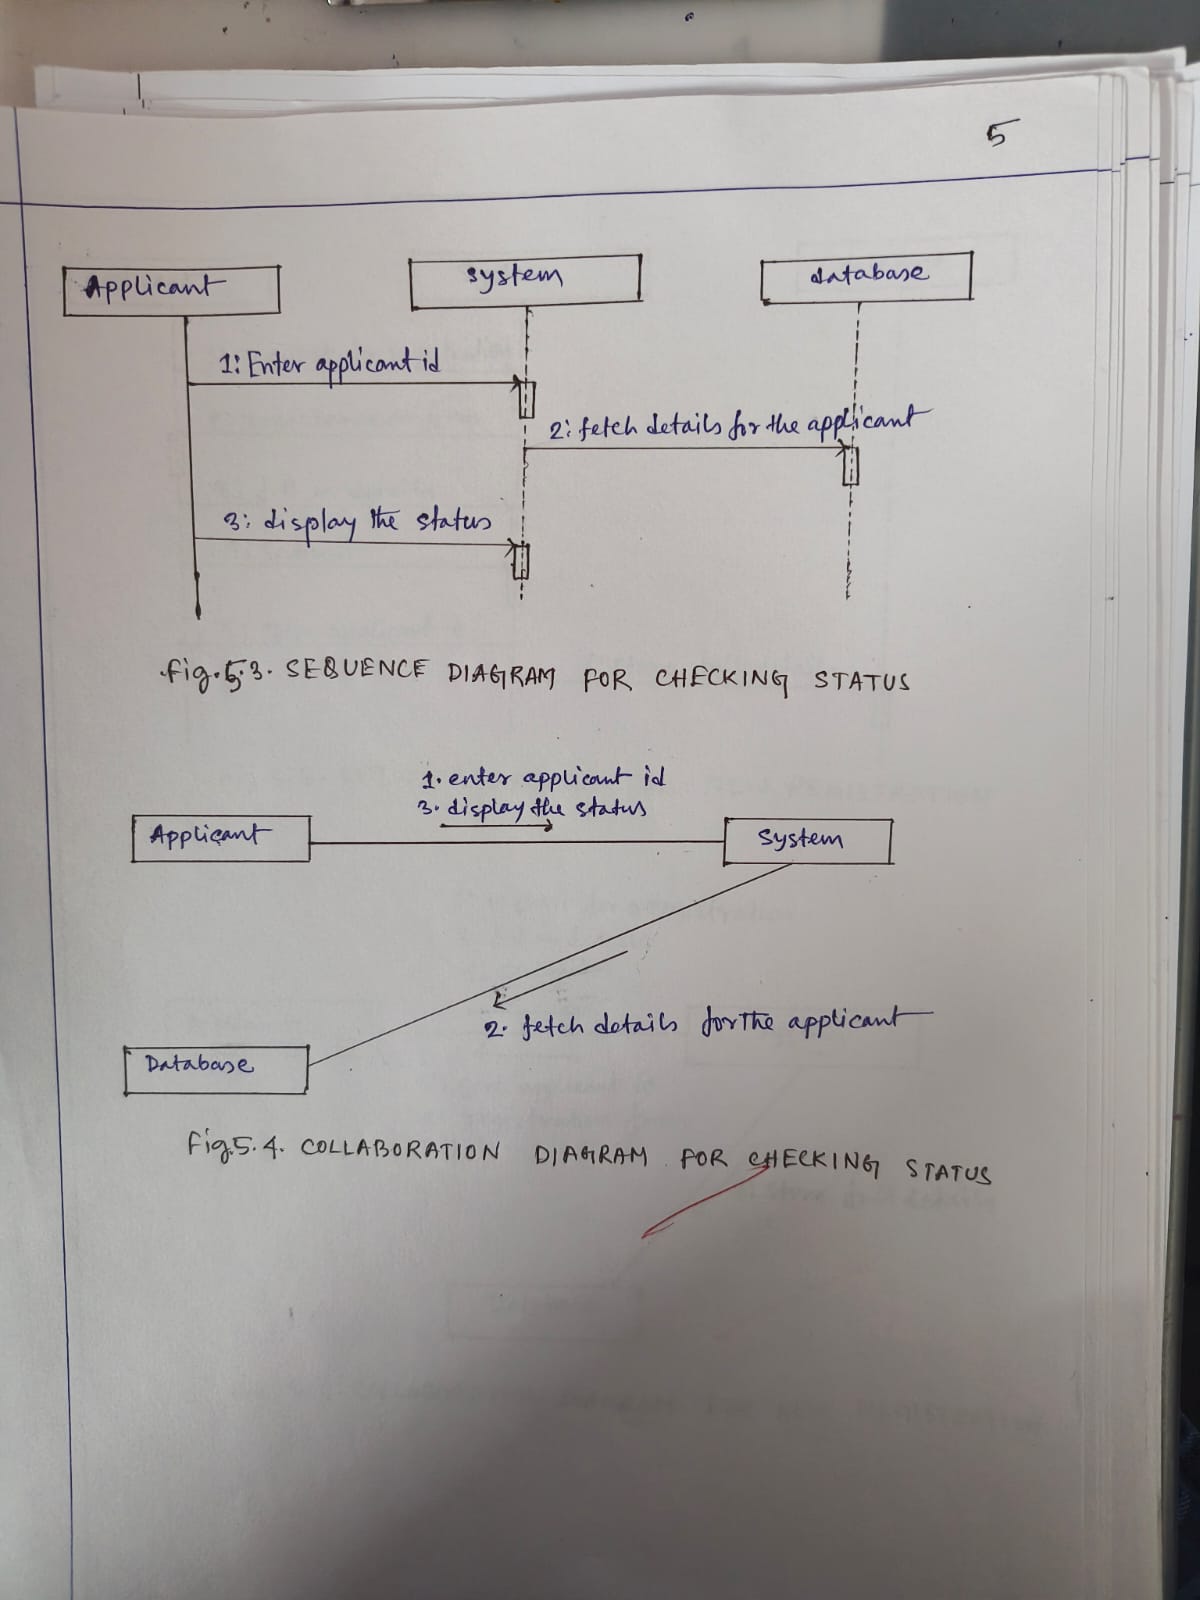 5
Applicant
system
database
1: Enter applicant id
2: fetch details for the applicant
3: display the status
fig.5.3. SEQUENCE DIAGRAM FOR CHECKING STATUS
1. enter applicant id
3. display the status
Applicant
System
2. fetch details for the applicant
Database
Fig.5.4. COLLABORATION DIAGRAM FOR CHECKING STATUS